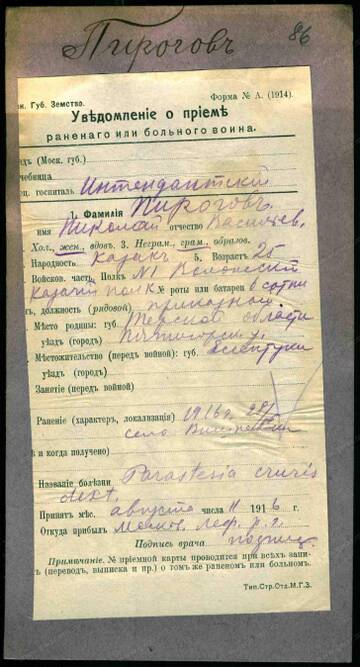 Пироговъ 86
Форма № А. (1914).
Губ. Земство.
Увѣдомленіе о пріемѣ
раненаго или больного воина.
(Моск. губ.)
госпиталь Интендантскій
1. Фамилія Пироговъ
имя Николай отчество Васильев.
Хол., жен., вдовъ. 3. Неграм., грам., образов.
Народность казакъ 5. Возрастъ 25
Войсков. часть, Полкъ № 1
Казачій полкъ № роты или батареи 6 сотни
должность (рядовой) приказной
Мѣсто родины: губ. Терской области
уѣздъ (городъ)
Мѣстожительство (передъ войной): губ. Есентуки
уѣздъ (городъ)
Занятіе (передъ войной)
Раненіе (характеръ, локализація) 1916 г.
село
и когда получено)
Названіе болѣзни Parastesia cruris
dext.
Принятъ мѣс. августа числа 11 1916 г.
Откуда прибылъ
Подпись врача
Примѣчаніе. № пріемной карты проводится при всѣхъ запи-
(переводъ, выписка и пр.) о томъ же раненомъ или больномъ.
Тип.Стр.Отд.М.Г.З.